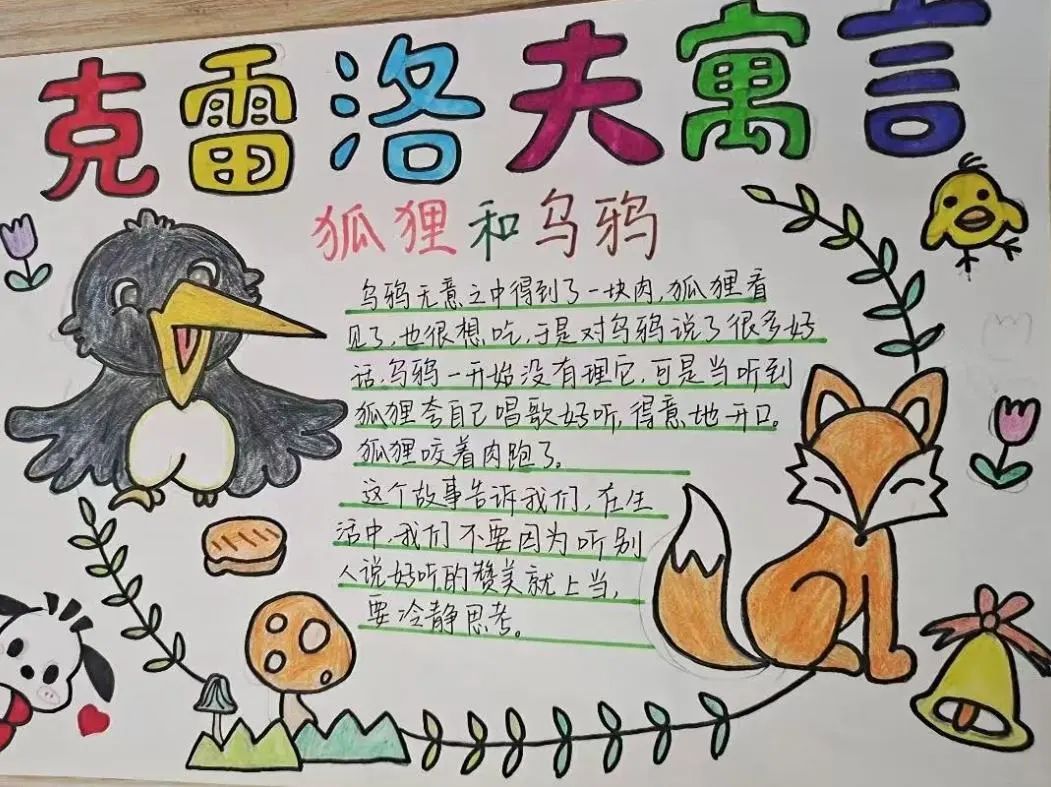 克雷洛夫寓言
狐狸和乌鸦
乌鸦无意之中得到了一块肉,狐狸看
见了,也很想吃,于是对乌鸦说了很多好
话,乌鸦一开始没有理它,可是当听到
狐狸夸自己唱歌好听,得意地开口。
狐狸咬着肉跑了。
这个故事告诉我们,在生
活中,我们不要因为听别
人说好听的赞美就上当,
要冷静思考。